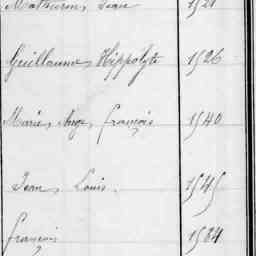 Mathurin, Jean 1921
Guillaume, Hippolyte 1926
Marie, Ange, François 1940
Jean, Louis. 1945
François 1984